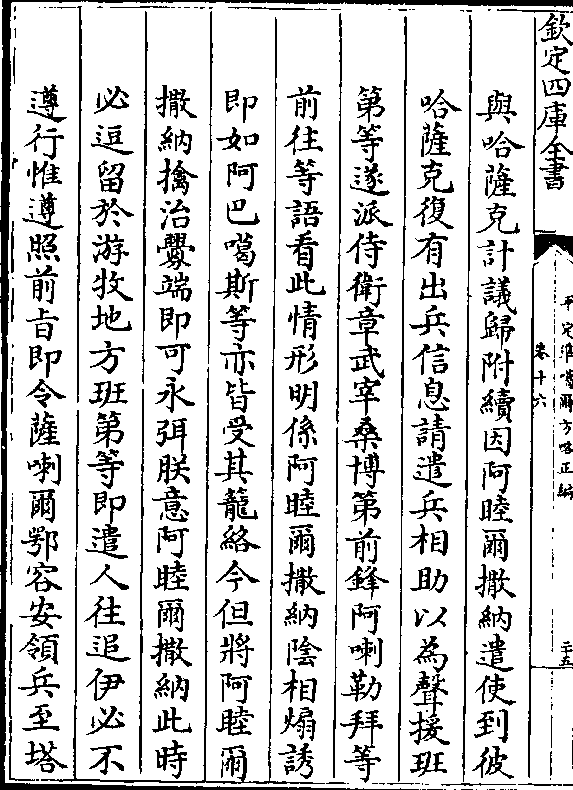 欽定四庫全書
平定準噶爾方略正編
卷十六
二十五
與哈薩克計議歸附續因阿睦爾撒納遣使到彼
哈薩克復有出兵信息請遣兵相助以為聲援班
第等遂派侍衛章武宰桑博第前鋒阿喇勒拜等
前往等語看此情形明係阿睦爾撒納陰相煽誘
即如阿巴噶斯等亦皆受其籠絡今但將阿睦爾
撒納擒治釁端即可永弭朕意阿睦爾撒納此時
必逗留於游牧地方班第等即遣人往追伊必不
遵行惟遵照前㫖即令薩喇爾鄂容安領兵至塔